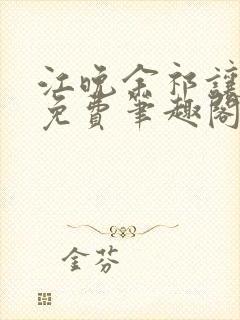 江晚余祁让
免费笔趣阁
金芬